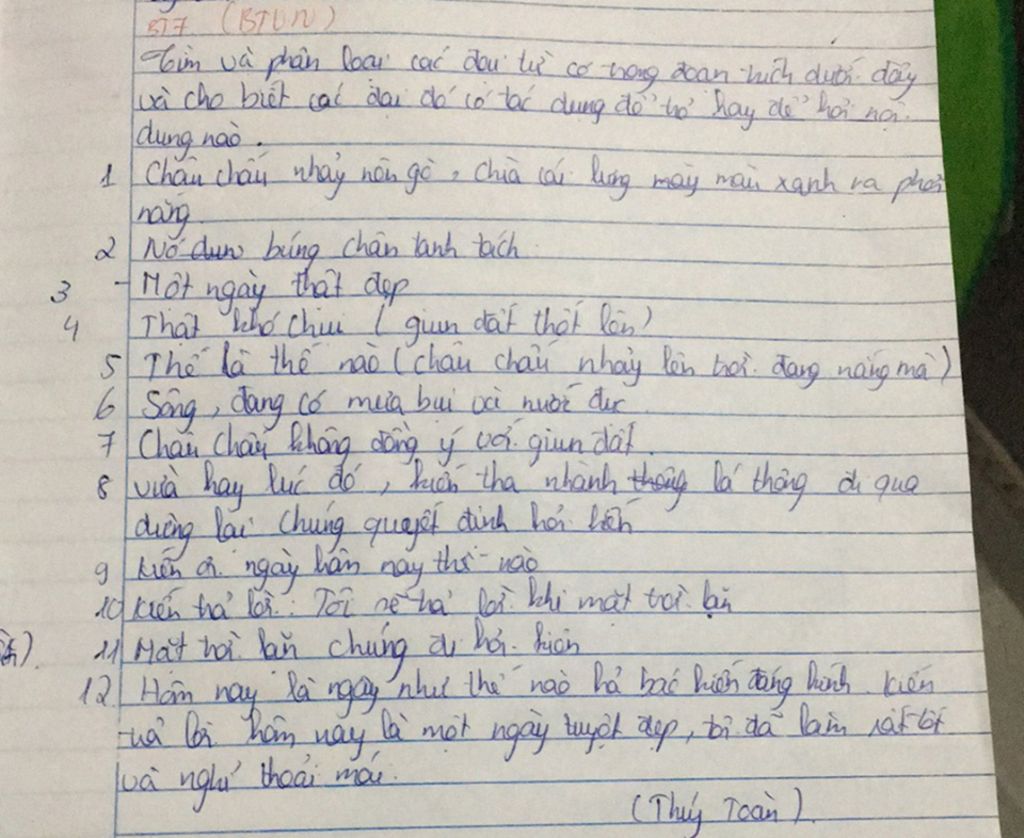 BT7 (BTVN)
Tìm và phân loại các đại từ có trong đoạn trích dưới đây
và cho biết các đại đó có tác dụng để trỏ hay để hỏi nội
dung nào.
1 Châu chấu nhảy lên gò, chìa cái lưng màu xanh ra phơi
nắng
2 Nó búng chân tanh tách
3 - Một ngày thật đẹp
4 Thật khó chịu (giun đất thốt lên)
5 Thế là thế nào (châu chấu nhảy lên trời đang nắng mà)
6 Sông, đang có mưa bụi và nước đục
7 Châu chấu không đồng ý với giun đất
8 vừa hay lúc đó, kiến tha nhành thông lá thông đi qua
dừng lại chúng quyết định hỏi kiến
9 kiến ơi ngày hôm nay thế nào
10 kiến trả lời: Tôi sẽ trả lời khi mặt trời lặn
11 Mặt trời lặn chúng đi hỏi kiến
12 Hôm nay là ngày như thế nào hả bác kiến đáng kính. kiến
trả lời hôm nay là một ngày tuyệt đẹp, tôi đã làm rất tốt
và nghỉ thoải mái.
(Thúy Toàn)